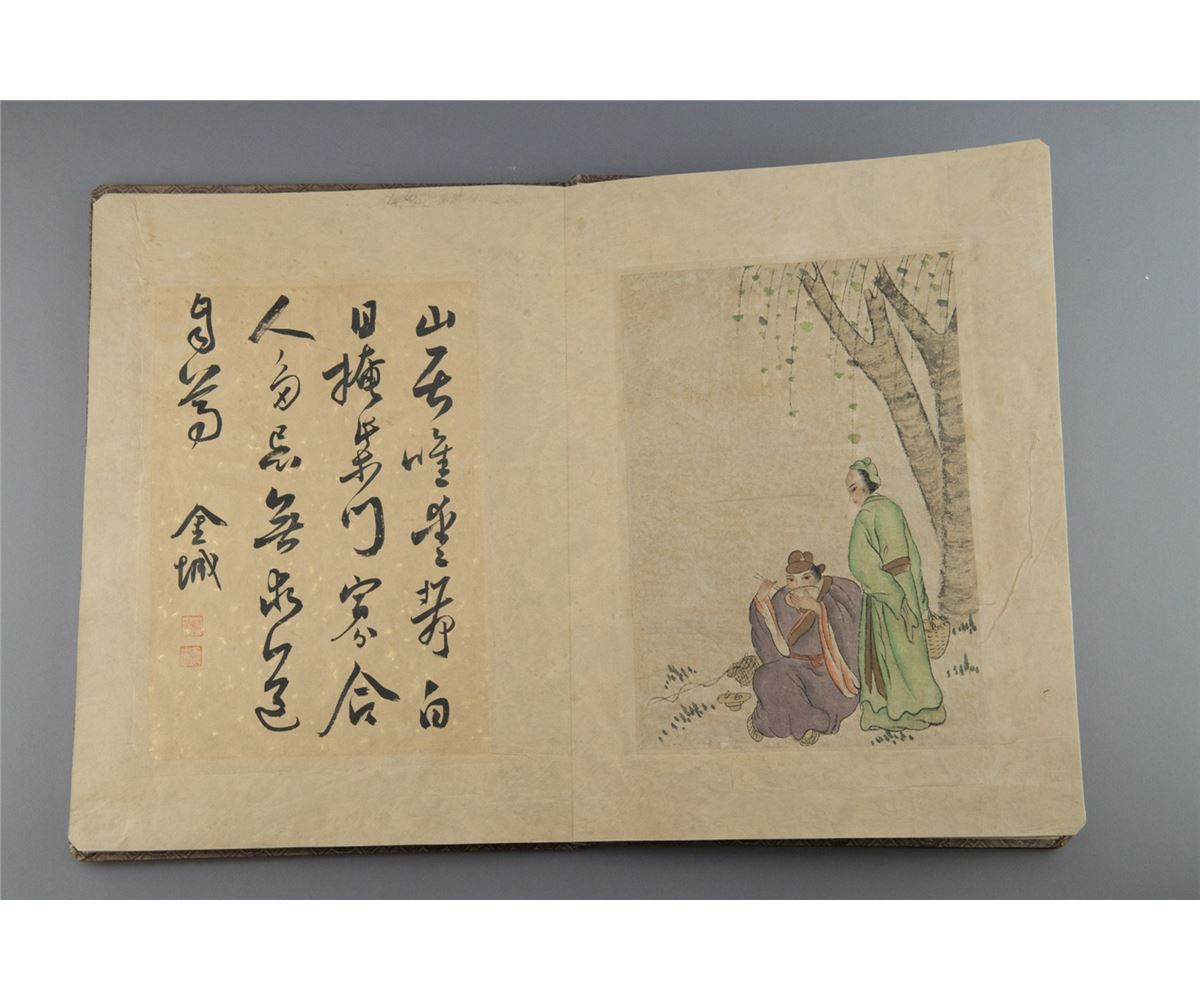 山居唯愛静白
日掩柴門寡合
人多忌無求道
自尊
金城